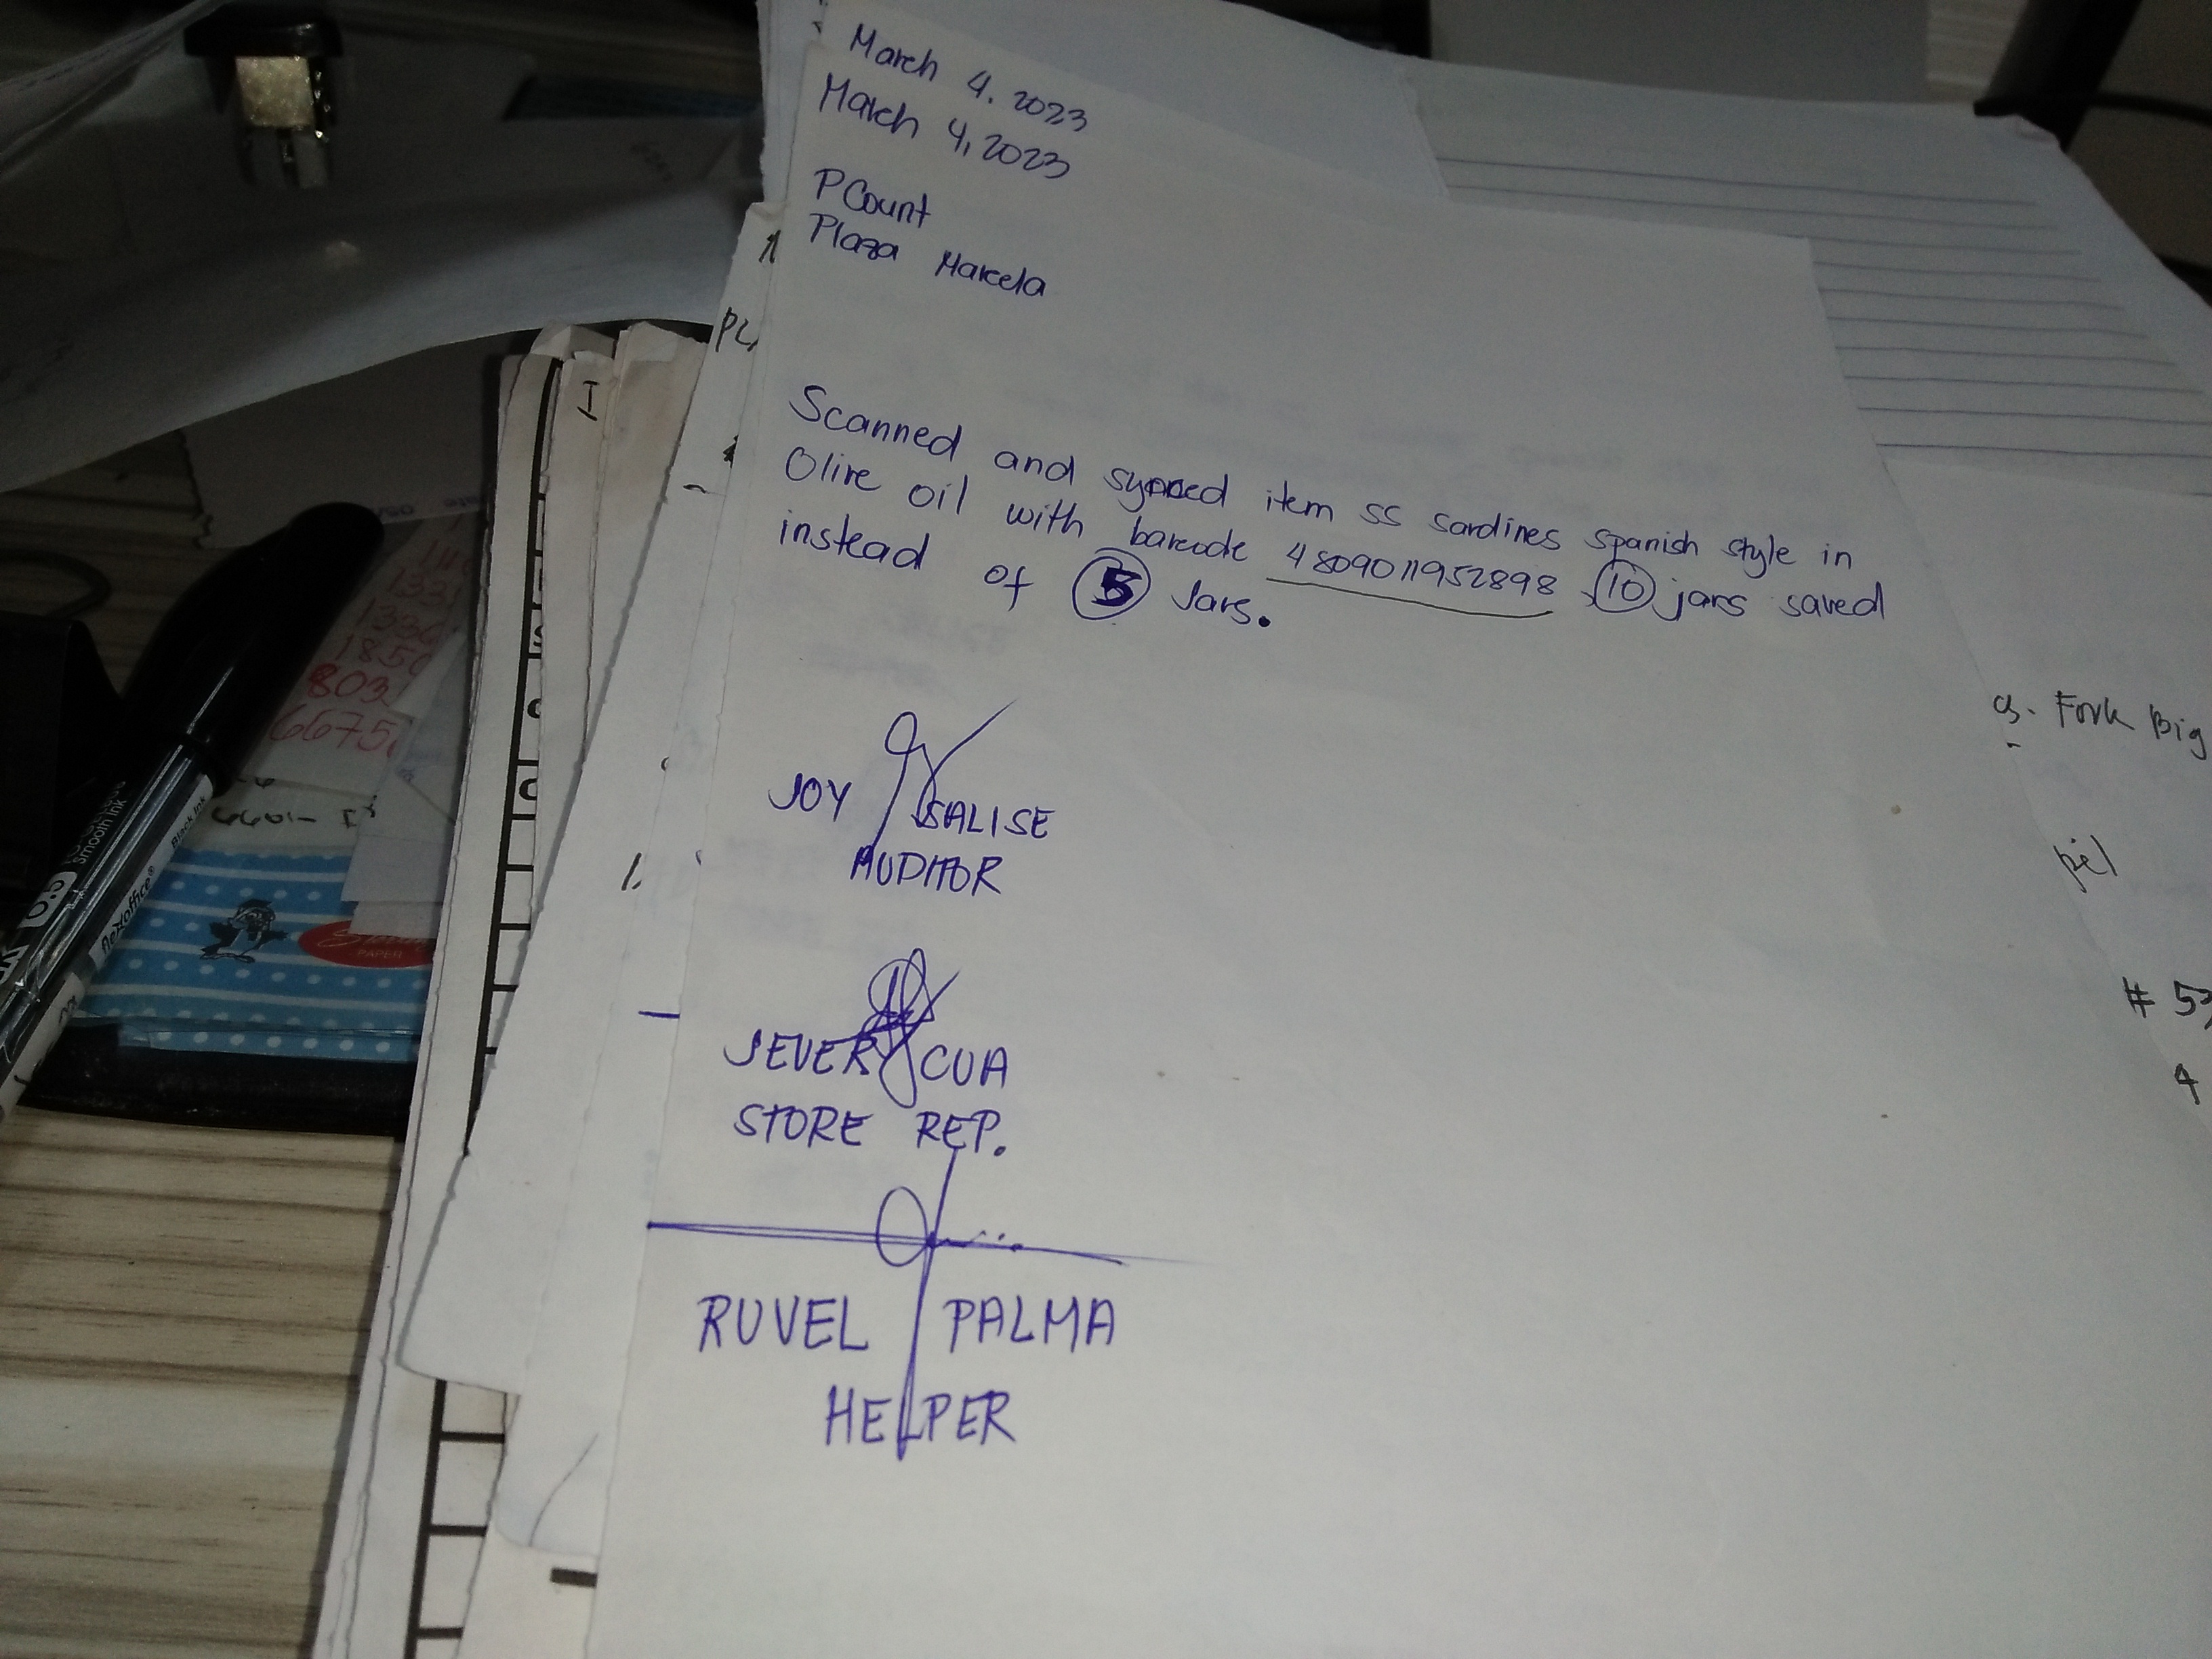 March 4, 2023
March 4, 2023
PCount
Plaza Marcela
Scanned and synced item SS sardines spanish style in
Olive oil with barcode 4809011952898, 10 jars saved
instead of 5 Jars.
JOY SALISE
AUDITOR
JEVER CUA
STORE REP.
RUVEL PALMA
HELPER
PL
I
1.
Fork Big
# 53
4
803
6675
0.5
smooth ink
flexoffice®
Black Ink
PAPER